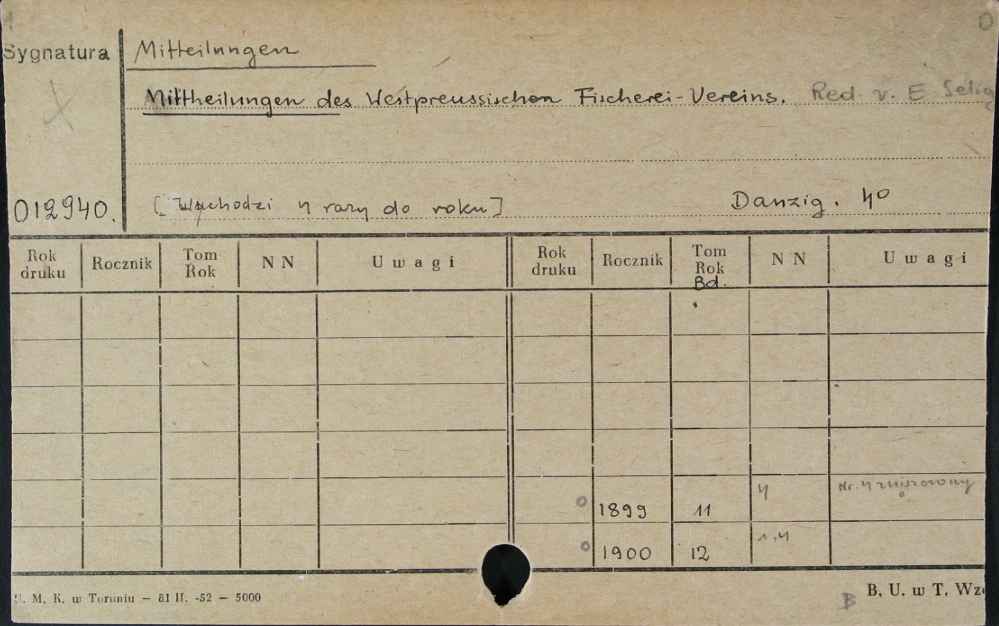 Sygnatura
Mitteilungen
Mittheilungen des Westpreussischen Fischerei-Vereins. Red. v. E. Selig
012940.
[Wychodzi 4 razy do roku] Danzig. 4°
Rok druku Rocznik Tom Rok N N Uwagi Rok druku Rocznik Tom Rok N N Uwagi
Bd.
1899 11 4 Nr. 4
1900 12 1,4
M. K. w Toruniu — 81 II. -52 — 5000
B. U. w T. Wz
B